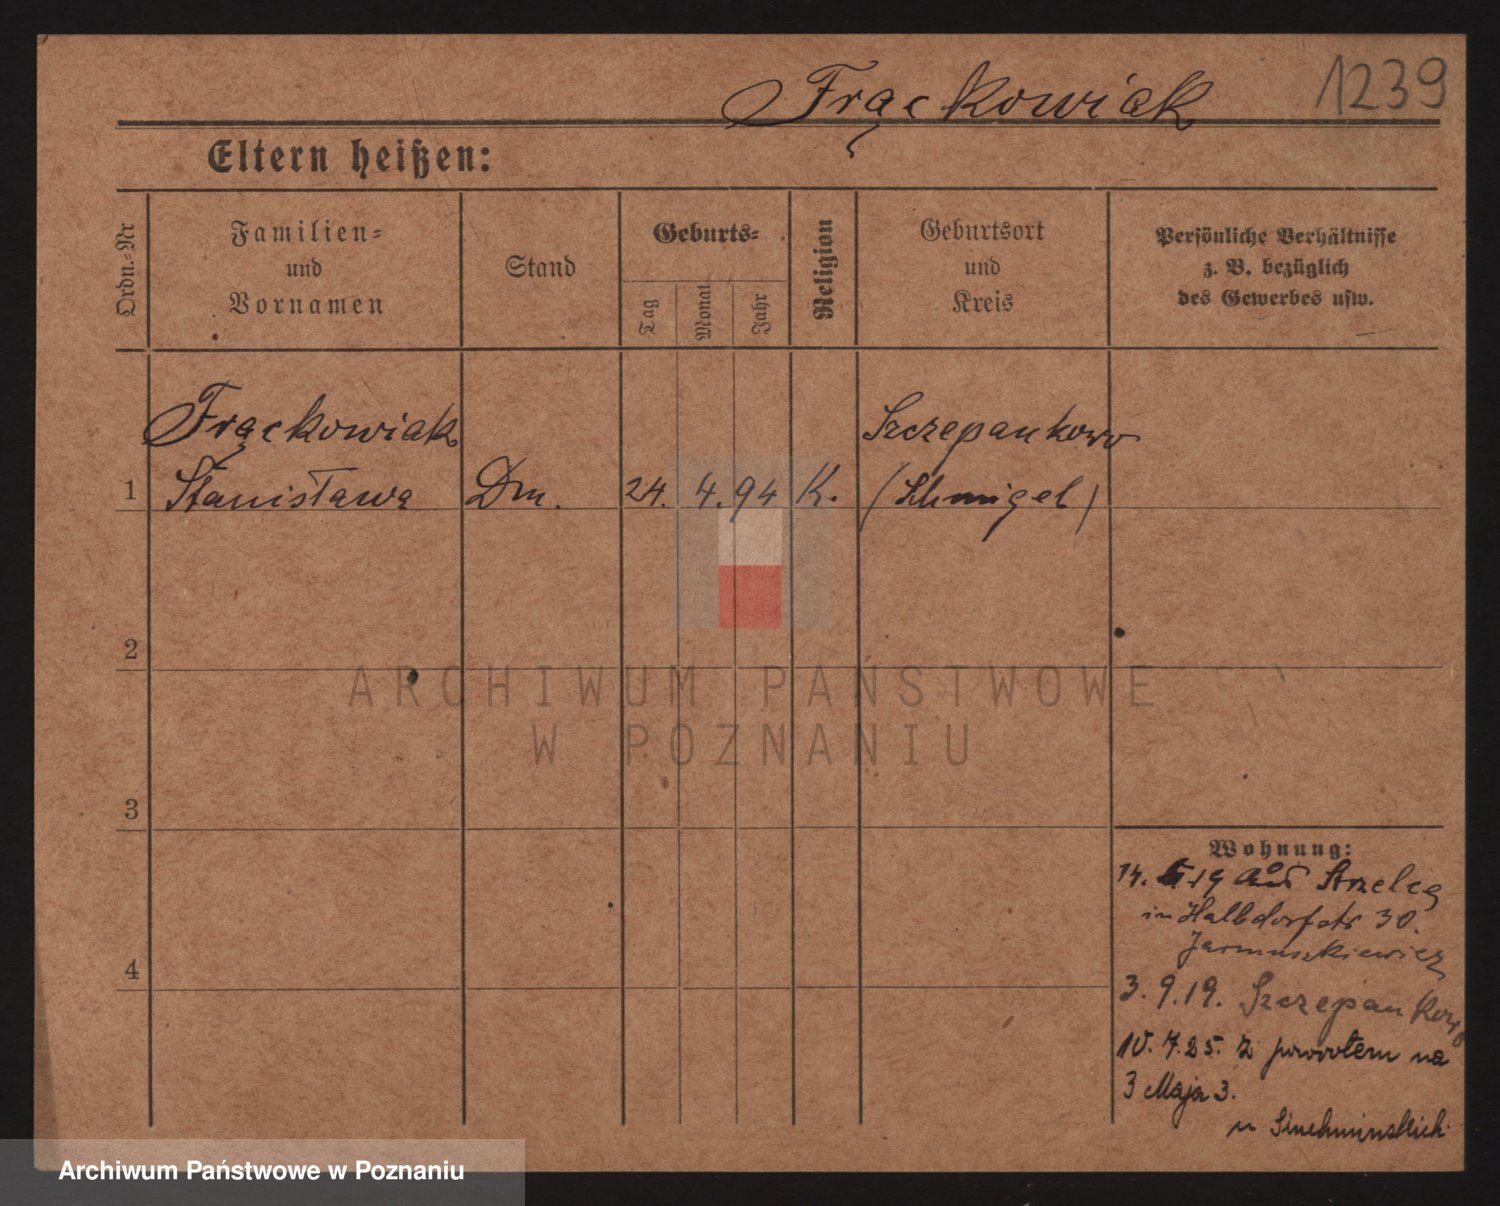 Frąckowiak
1239
Eltern heißen:
Ordn.-Nr
Familien-
und
Vornamen
Stand
Geburts-
Tag
Monat
Jahr
Religion
Geburtsort
und
Kreis
Persönliche Verhältnisse
z. B. bezüglich
des Gewerbes usw.
Frąckowiak Szczepankowo
1 Stanisława Dm. 24. 4. 94 K. (Schmigel)
2
3
4
Wohnung:
14. 5 19 aus Strzelcą
in Halbdorfstr 30.
Jarmuszkiewicz
3. 9. 19. Szczepankowo
10. 7. 25. z powrotem na
3 Maja 3.
u
ARCHIWUM PAŃSTWOWE
W POZNANIU
Archiwum Państwowe w Poznaniu